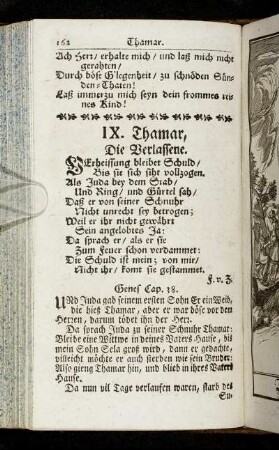 162 Thamar.
Ach Herr/ erhalte mich/ und laß mich nicht
gerahten/
Durch böse G'legenheit/ zu schnöden Sün-
den-Thaten!
Laß immerzu mich seyn dein frommes rei-
nes Kind!
IX. Thamar,
Die Verlassene.
VErheissung bleibet Schuld/
Bis sie sich sihr vollzogen.
Als Juda bey dem Stab/
Und Ring/ und Gürtel sah/
Daß er von seiner Schnuhr
Nicht unrecht sey betrogen;
Weil er ihr nicht gewährt
Sein angelobtes Ja:
Da sprach er/ als er sie
Zum Feuer schon verdammet:
Die Schuld ist mein; von mir/
Nicht ihr/ komt sie gestammet.
F. v. Z.
Genes. Cap. 38.
UNd Juda gab seinem ersten Sohn Er ein Weib,
die hieß Thamar, aber er war böse vor den
Herren, darum tödet ihn der Herr.
Da sprach Juda zu seiner Schnuhr Thamar:
Bleibe eine Wittwe in deines Vaters Hause, bis
mein Sohn Sela groß wird, dann er gedachte,
villeicht möchte er auch sterben wie sein Bruder:
Also gieng Thamar hin, und blieb in ihres Vaters
Hause.
Da nun vil Tage verlaufen waren, starb des
Su-